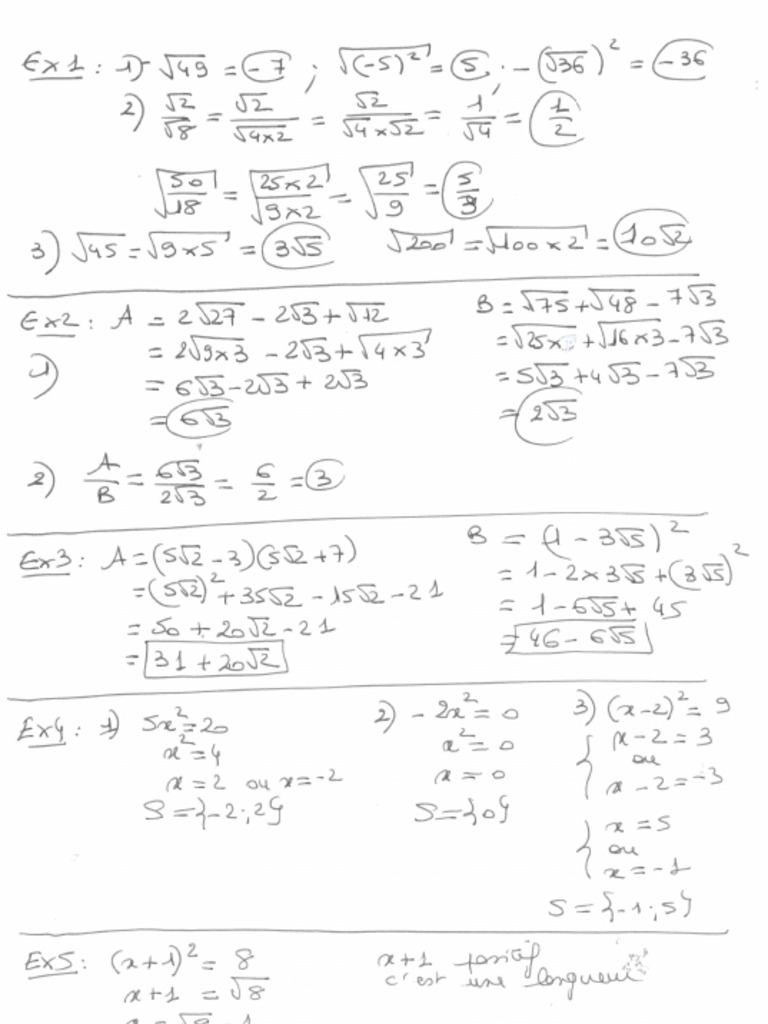 Ex1 : 1) -√49 = -7 ; √(-5)² = 5 ; -(√36)² = -36
2) √2/√8 = √2/√(4×2) = √2/(√4×√2) = 1/√4 = 1/2
√(50/18) = √((25×2)/(9×2)) = √(25/9) = 5/3
3) √45 = √(9×5) = 3√5   √200 = √(100×2) = 10√2
Ex2 : A = 2√27 - 2√3 + √12
= 2√(9×3) - 2√3 + √(4×3)
1)
= 6√3 - 2√3 + 2√3
= 6√3
B = √75 + √48 - 7√3
= √25× + √(16×3) - 7√3
= 5√3 + 4√3 - 7√3
= 2√3
2) A/B = 6√3/2√3 = 6/2 = 3
Ex3 : A = (5√2 - 3)(5√2 + 7)
= (5√2)² + 35√2 - 15√2 - 21
= 50 + 20√2 - 21
= 31 + 20√2
B = (1 - 3√5)²
= 1 - 2×3√5 + (3√5)²
= 1 - 6√5 + 45
= 46 - 6√5
Ex4 : 1) 5x² = 20
x² = 4
x = 2 ou x = -2
S = {-2 ; 2}
2) -2x² = 0
x² = 0
x = 0
S = {0}
3) (x-2)² = 9
x - 2 = 3
ou
x - 2 = -3
x = 5
ou
x = -1
S = {-1 ; 5}
Ex5 : (x+1)² = 8
x+1 = √8
x = √8 - 1
x+1 positif
c'est une longueur